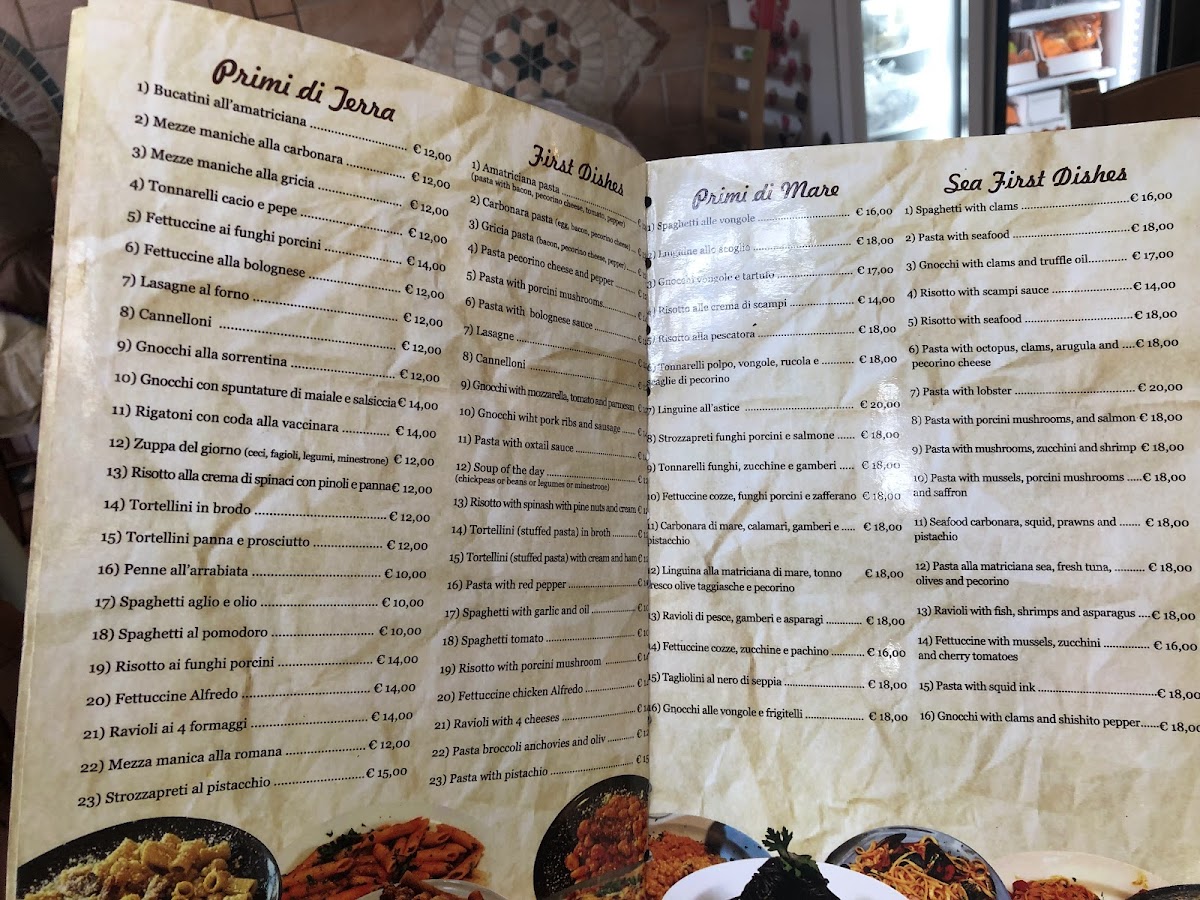 Primi di Terra
1) Bucatini all'amatriciana ........ € 12,00
2) Mezze maniche alla carbonara ........ € 12,00
3) Mezze maniche alla gricia ........ € 12,00
4) Tonnarelli cacio e pepe ........ € 12,00
5) Fettuccine ai funghi porcini ........ € 14,00
6) Fettuccine alla bolognese ........ € 12,00
7) Lasagne al forno ........ € 12,00
8) Cannelloni ........ € 12,00
9) Gnocchi alla sorrentina ........ € 12,00
10) Gnocchi con spuntature di maiale e salsiccia € 14,00
11) Rigatoni con coda alla vaccinara ........ € 14,00
12) Zuppa del giorno (ceci, fagioli, legumi, minestrone) € 12,00
13) Risotto alla crema di spinaci con pinoli e panna € 12,00
14) Tortellini in brodo ........ € 12,00
15) Tortellini panna e prosciutto ........ € 12,00
16) Penne all'arrabiata ........ € 10,00
17) Spaghetti aglio e olio ........ € 10,00
18) Spaghetti al pomodoro ........ € 10,00
19) Risotto ai funghi porcini ........ € 14,00
20) Fettuccine Alfredo ........ € 14,00
21) Ravioli ai 4 formaggi ........ € 14,00
22) Mezza manica alla romana ........ € 12,00
23) Strozzapreti al pistacchio ........ € 15,00
First Dishes
1) Amatriciana pasta ........ €
(pasta with bacon, pecorino cheese, tomato, pepper)
2) Carbonara pasta (egg, bacon, pecorino cheese)
3) Gricia pasta (bacon, pecorino cheese, pepper)
4) Pasta pecorino cheese and pepper ........
5) Pasta with porcini mushrooms ........
6) Pasta with bolognese sauce ........
7) Lasagne ........
8) Cannelloni ........
9) Gnocchi with mozzarella, tomato and parmesan
10) Gnocchi wiht pork ribs and sausage ........
11) Pasta with oxtail sauce ........
12) Soup of the day ........
(chickpeas or beans or legumes or minestrone)
13) Risotto with spinash with pine nuts and cream
14) Tortellini (stuffed pasta) in broth ........
15) Tortellini (stuffed pasta) with cream and ham
16) Pasta with red pepper ........
17) Spaghetti with garlic and oil ........
18) Spaghetti tomato ........
19) Risotto with porcini mushroom ........
20) Fettuccine chicken Alfredo ........
21) Ravioli with 4 cheeses ........
22) Pasta broccoli anchovies and oliv ........
23) Pasta with pistachio ........
Primi di Mare
1) Spaghetti alle vongole ........ € 16,00
2) Linguine allo scoglio ........ € 18,00
3) Gnocchi vongole e tartufo ........ € 17,00
4) Risotto alla crema di scampi ........ € 14,00
5) Risotto alla pescatora ........ € 18,00
6) Tonnarelli polpo, vongole, rucola e ........ € 18,00
scaglie di pecorino
7) Linguine all'astice ........ € 20,00
8) Strozzapreti funghi porcini e salmone ...... € 18,00
9) Tonnarelli funghi, zucchine e gamberi ..... € 18,00
10) Fettuccine cozze, funghi porcini e zafferano € 18,00
11) Carbonara di mare, calamari, gamberi e ..... € 18,00
pistacchio
12) Linguina alla matriciana di mare, tonno € 18,00
fresco olive taggiasche e pecorino
13) Ravioli di pesce, gamberi e asparagi ........ € 18,00
14) Fettuccine cozze, zucchine e pachino ........ € 16,00
15) Tagliolini al nero di seppia ........ € 18,00
16) Gnocchi alle vongole e frigitelli ........ € 18,00
Sea First Dishes
1) Spaghetti with clams ........ € 16,00
2) Pasta with seafood ........ € 18,00
3) Gnocchi with clams and truffle oil ........ € 17,00
4) Risotto with scampi sauce ........ € 14,00
5) Risotto with seafood ........ € 18,00
6) Pasta with octopus, clams, arugula and .... € 18,00
pecorino cheese
7) Pasta with lobster ........ € 20,00
8) Pasta with porcini mushrooms, and salmon € 18,00
9) Pasta with mushrooms, zucchini and shrimp € 18,00
10) Pasta with mussels, porcini mushrooms ..... € 18,00
and saffron
11) Seafood carbonara, squid, prawns and ....... € 18,00
pistachio
12) Pasta alla matriciana sea, fresh tuna, ......... € 18,00
olives and pecorino
13) Ravioli with fish, shrimps and asparagus .... € 18,00
14) Fettuccine with mussels, zucchini ........ € 16,00
and cherry tomatoes
15) Pasta with squid ink ........ € 18,00
16) Gnocchi with clams and shishito pepper..... € 18,00